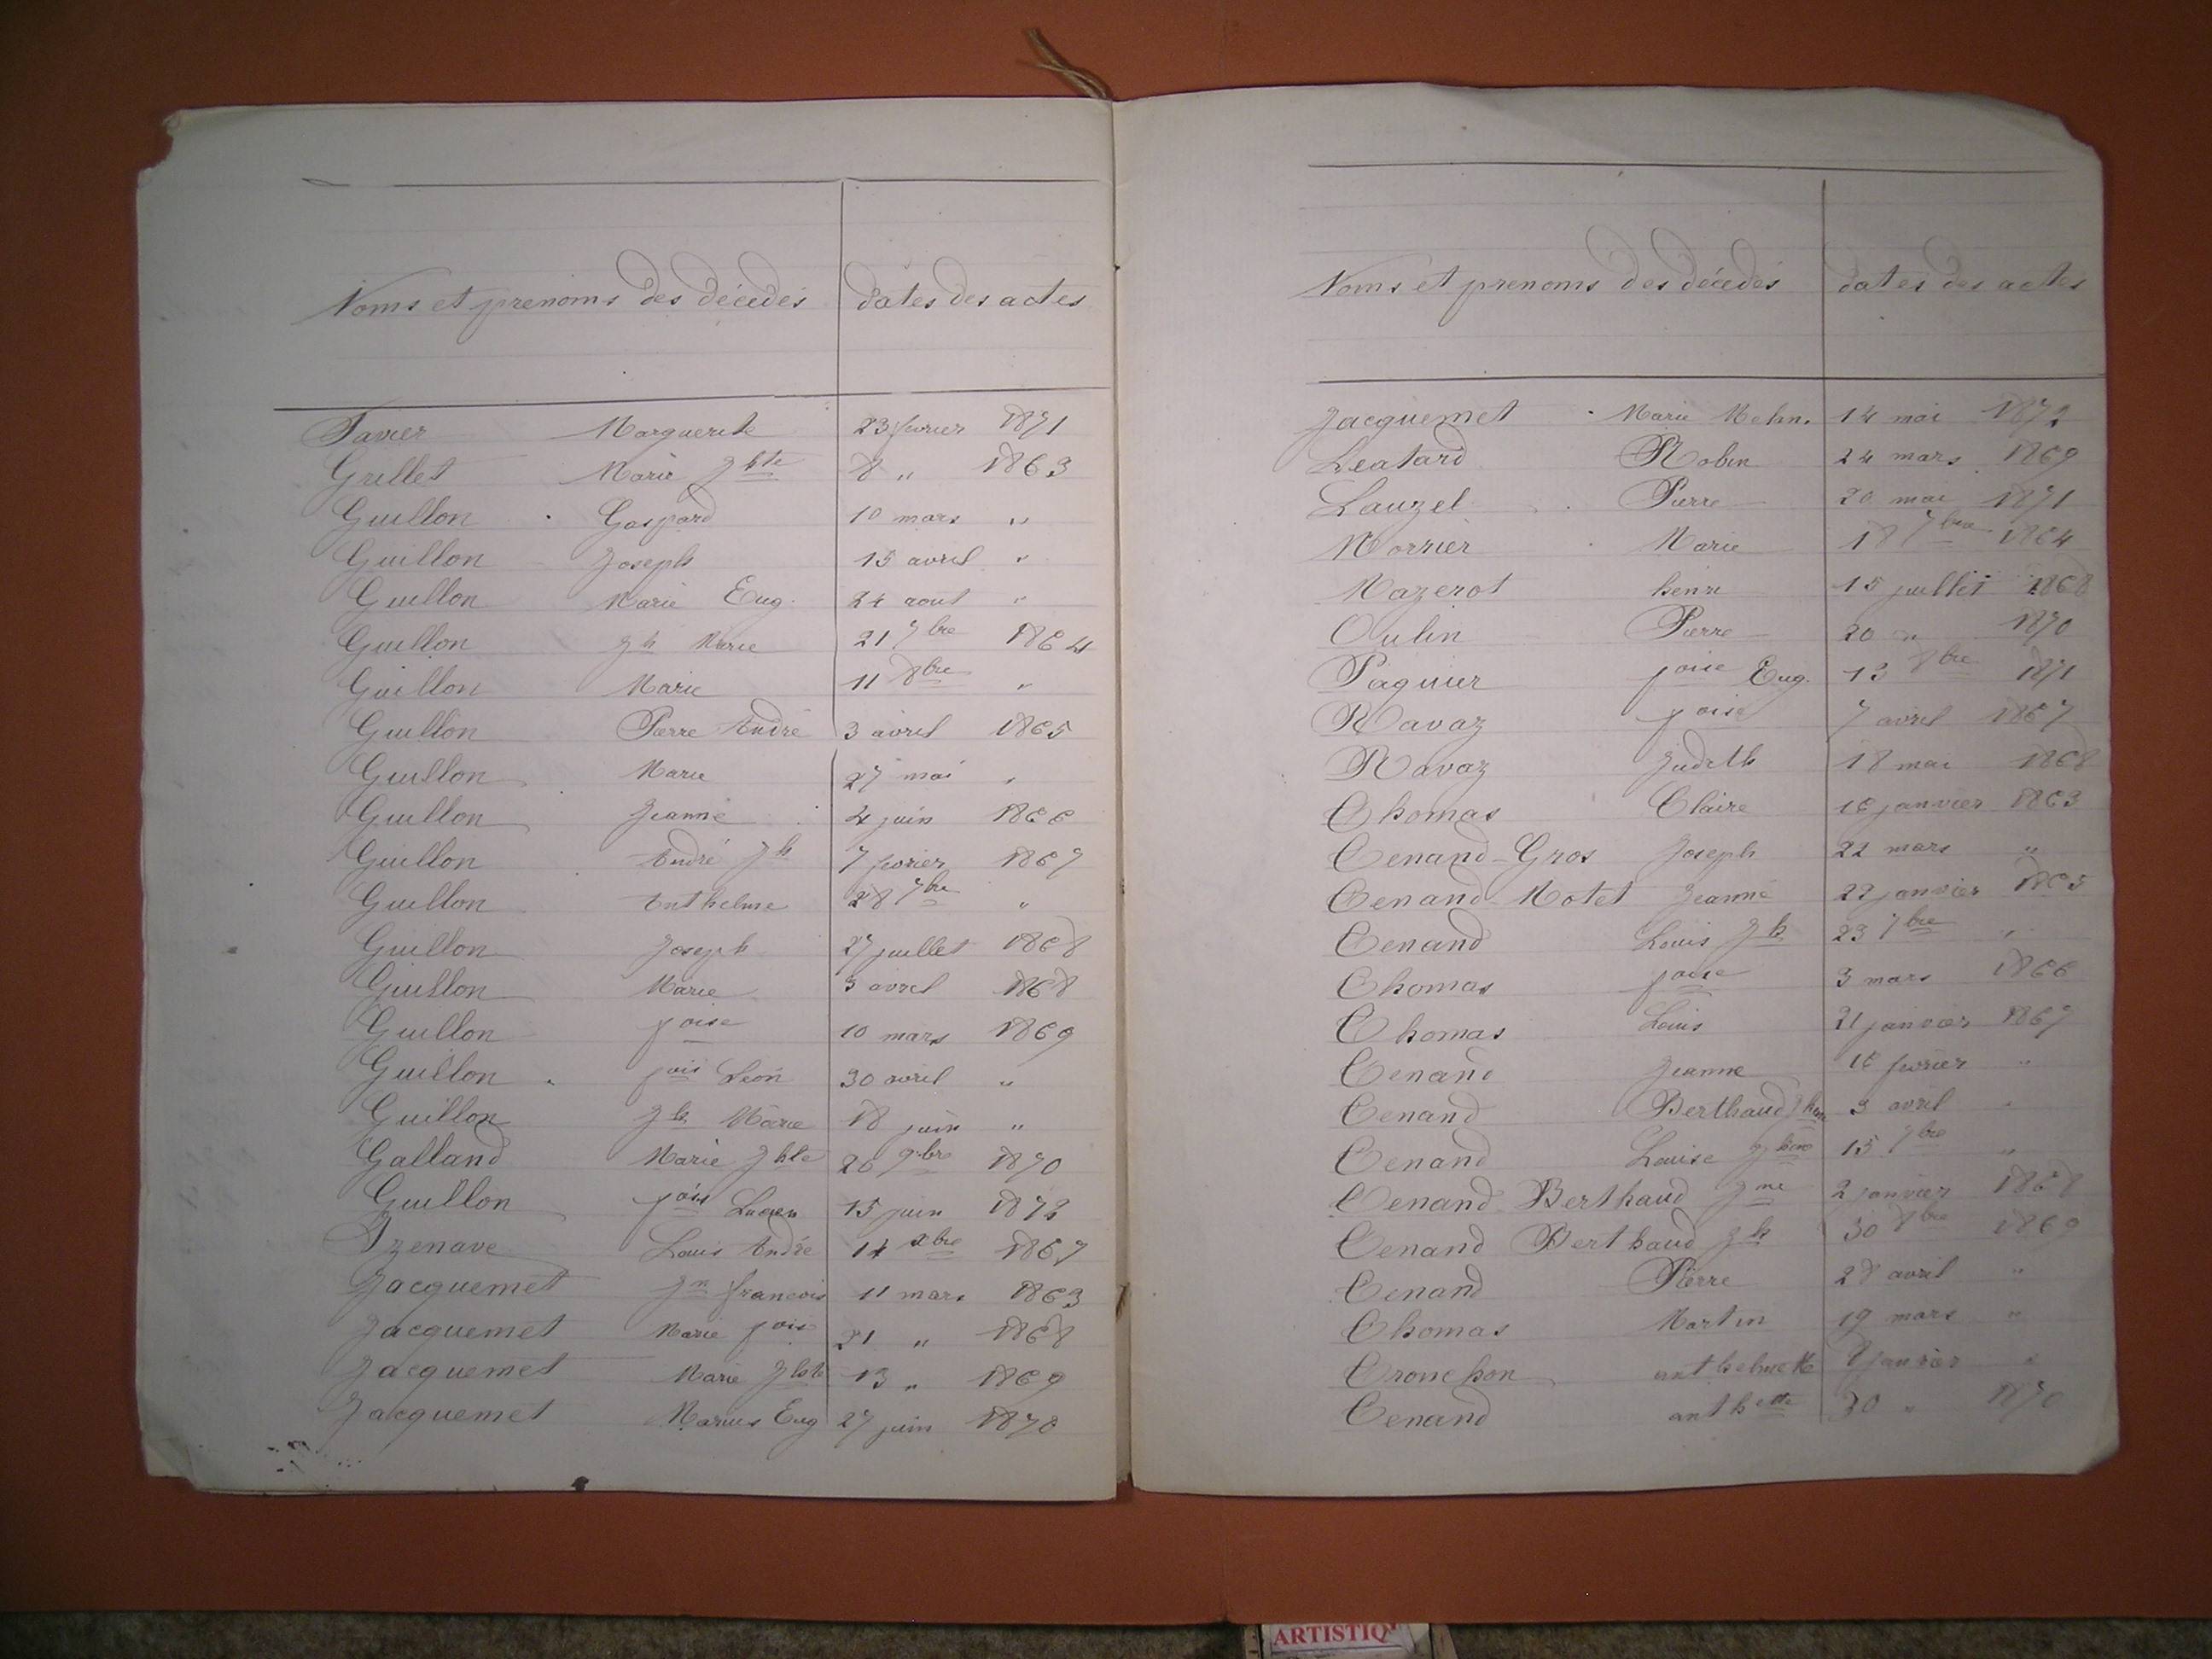 Noms et prenoms des décedés dates des actes
Favier Marguerite 23 fevrier 1871
Grillet Marie Jhte 8 " 1863
Guillon Gaspard 10 mars "
Guillon Joseph 15 avril "
Guillon Marie Eug. 24 aout "
Guillon Jh Marie 21 7bre 1864
Guillon Marie 11 8bre "
Guillon Pierre André 3 avril 1865
Guillon Marie 27 mai "
Guillon Jeanne 4 juin 1866
Guillon André Jh 7 fevrier 1867
Guillon Anthelme 28 7bre "
Guillon Joseph 27 juillet 1868
Guillon Marie 3 avril 1868
Guillon foise 10 mars 1869
Guillon fois Léon 30 avril "
Guillon Jh Marie 18 juin "
Galland Marie Jhte 26 9bre 1870
Guillon fois Lucien 15 juin 1872
Izenave Louis André 14 xbre 1867
Jacquemet Jn francois 11 mars 1863
Jacquemet Marie fois 21 " 1868
Jacquemet Marie Jhte 13 " 1869
Jacquemet Marius Eug 27 juin 1870
Noms et prenoms des décedés dates des actes
Jacquemet Marie Melan. 14 mai 1872
Leatard Robin 24 mars 1869
Lauzel Pierre 20 mai 1871
Morrier Marie 18 7bre 1864
Mazerot henri 15 juillet 1868
Oulin Pierre 20 " 1870
Paquier foise Eug. 13 8bre 1871
Ravaz foise 7 avril 1867
Ravaz Judith 18 mai 1868
Thomas Claire 16 janvier 1863
Tenand-Gros Joseph 22 mars "
Tenand Motet Jeanne 22 janvier 1865
Tenand Louis Jh 23 7bre "
Thomas foise 3 mars 1866
Thomas Louis 21 janvier 1867
Tenand Jeanne 16 fevrier "
Tenand Berthaud 3 avril "
Tenand Louise Jhine 15 7bre "
Tenand Berthaud Jne 2 janvier 1868
Tenand Berthaud Jh 30 8bre 1869
Tenand Pierre 28 avril "
Thomas Martin 19 mars "
Tronchon anthelmette 8 janvier "
Tenand anthette 30 " 1870
ARTISTIQ